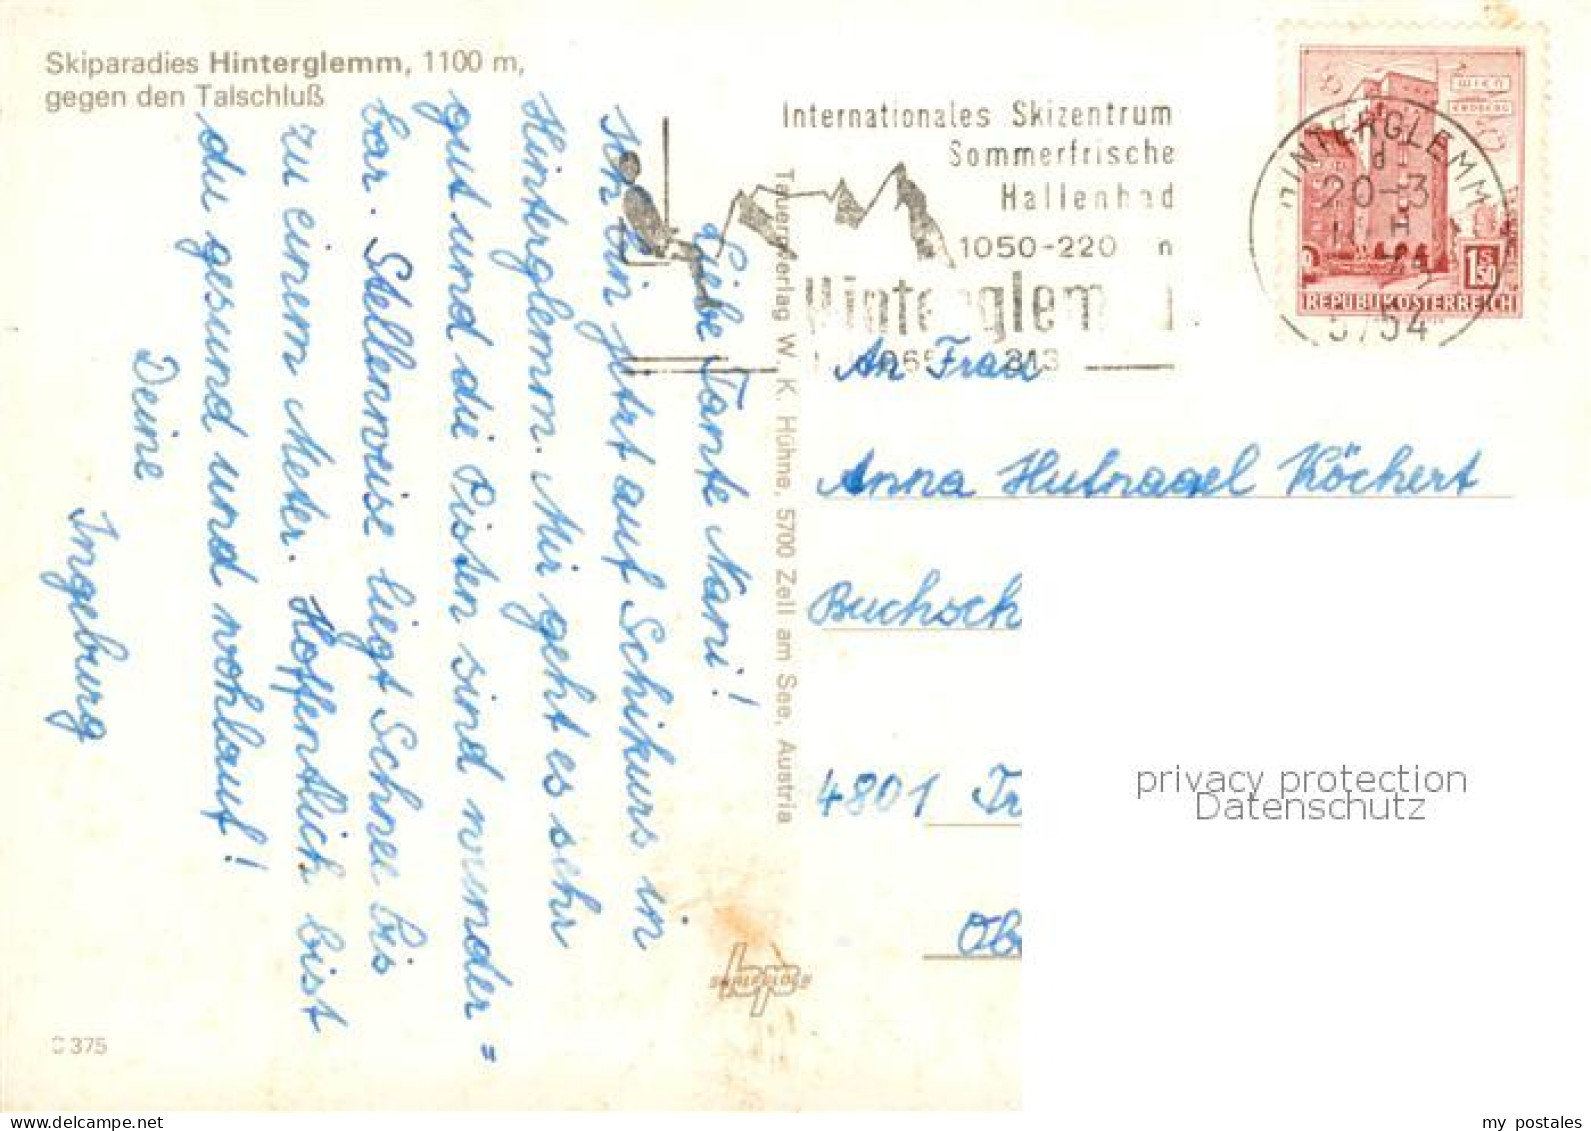 Skiparadies Hinterglemm, 1100 m,
gegen den Talschluß
Liebe Tante Nani!
Ich bin jetzt auf Schikurs in
Hinterglemm. Mir geht es sehr
gut und die Pisten sind wunder=
bar. Stellenweise liegt Schnee bis
zu einem Meter. Hoffentlich bist
du gesund und wohlauf!
Deine
Ingeburg
C 375
Tauern-Verlag W. K. Hühne, 5700 Zell am See, Austria
Internationales Skizentrum
Sommerfrische
Hallenbad
1050-220
Hinterglemm
HINTERGLEMM
20-3
5754
WIEN
ERDBERG
1S50
REPUBLIK ÖSTERREICH
An Frau
Anna Hufnagel Köchert
Buchsch
4801 Tr
Ob
privacy protection
Datenschutz
my postales